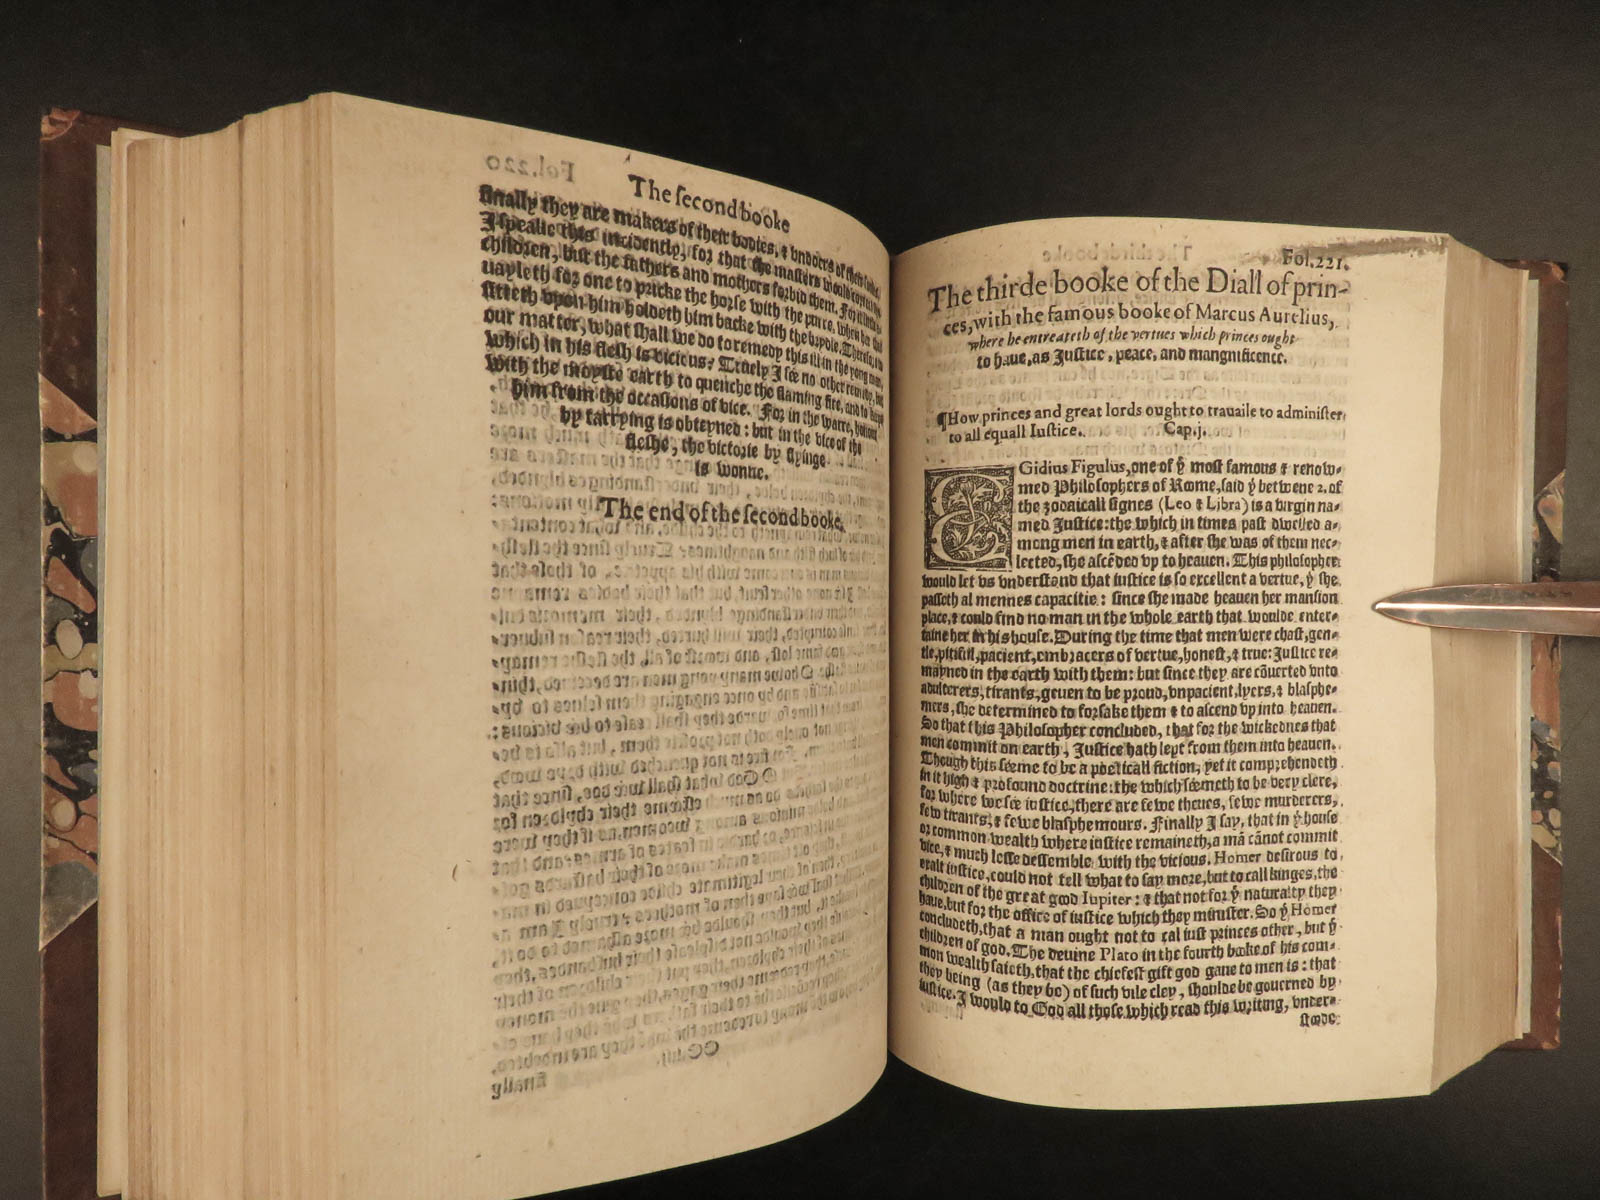 The second booke
finally they are makers of their bodies, & vndoers of their soules.
I speake this incidently, for that the masters would correct the
children, but the fathers and mothers forbid them. For it litle a-
uayleth for one to pricke the horse with the spurre, when he that
sitteth vpon him holdeth him backe with the brydle. Therefore, to
our matter, what shall we do to remedy this ill in the yong man,
which in his flesh is vicious? Truely I sée no other remedy, but
with the moyste earth to quenche the flaming fire, and to keepe
him from the occasions of vice. For in the warre, honour
by tarrying is obteyned: but in the vice of the
fleshe, the victorie by flyinge
is wonne.
The end of the second booke.
Fol.221.
The thirde booke of the Diall of prin-
ces, with the famous booke of Marcus Aurelius,
where he entreateth of the vertues which princes ought
to haue, as Justice, peace, and mangnificence.
¶How princes and great lords ought to trauaile to administer
to all equall Iustice. Cap.j.
EGidius Figulus, one of yͤ most famous & renow-
med Philosophers of Rome, said yͭ betwene 2. of
the zodaicall signes (Leo & Libra) is a virgin na-
med Justice: the which in times past dwelled a-
mong men in earth, & after she was of them neg-
lected, she ascẽded vp to heauen. This philosopher
would let vs vnderstand that iustice is so excellent a vertue, yͭ she
passeth al mennes capacitie: since she made heauen her mansion
place, & could find no man in the whole earth that woulde enter-
taine her in his house. During the time that men were chast, gen-
tle, pitifull, pacient, embracers of vertue, honest, & true: Justice re-
mayned in the earth with them: but since they are cõuerted vnto
adulterers, tirants, geuen to be proud, vnpacient, lyers, & blasphe-
mers, she determined to forsake them & to ascend vp into heauen.
So that this Philosopher concluded, that for the wickednes that
men commit on earth, Justice hath lept from them into heauen.
Though this séeme to be a poeticall fiction, yet it comprehendeth
in it high & profound doctrine: the which séemeth to be very clere,
for where we sée iustice, there are fewe theues, fewe murderers,
few tirants, & fewe blasphemours. Finally I say, that in yͤ house
or common wealth where iustice remaineth, a mã cãnot commit
vice, & much lesse dessemble with the vicious. Homer desirous to
exalt iustice, could not tell what to say more, but to call kinges, the
children of the great god Iupiter: & that not for yͤ naturalty they
haue, but for the office of iustice which they minister. So yͭ Homer
concludeth, that a man ought not to cal iust princes other, but yͤ
children of god. The deuine Plato in the fourth booke of his com-
mon wealth saieth, that the chiefest gift god gaue to men is: that
they being (as they be) of such vile cley, shoulde be gouerned by
iustice. I would to God all those which read this writing, vnder-
stoode